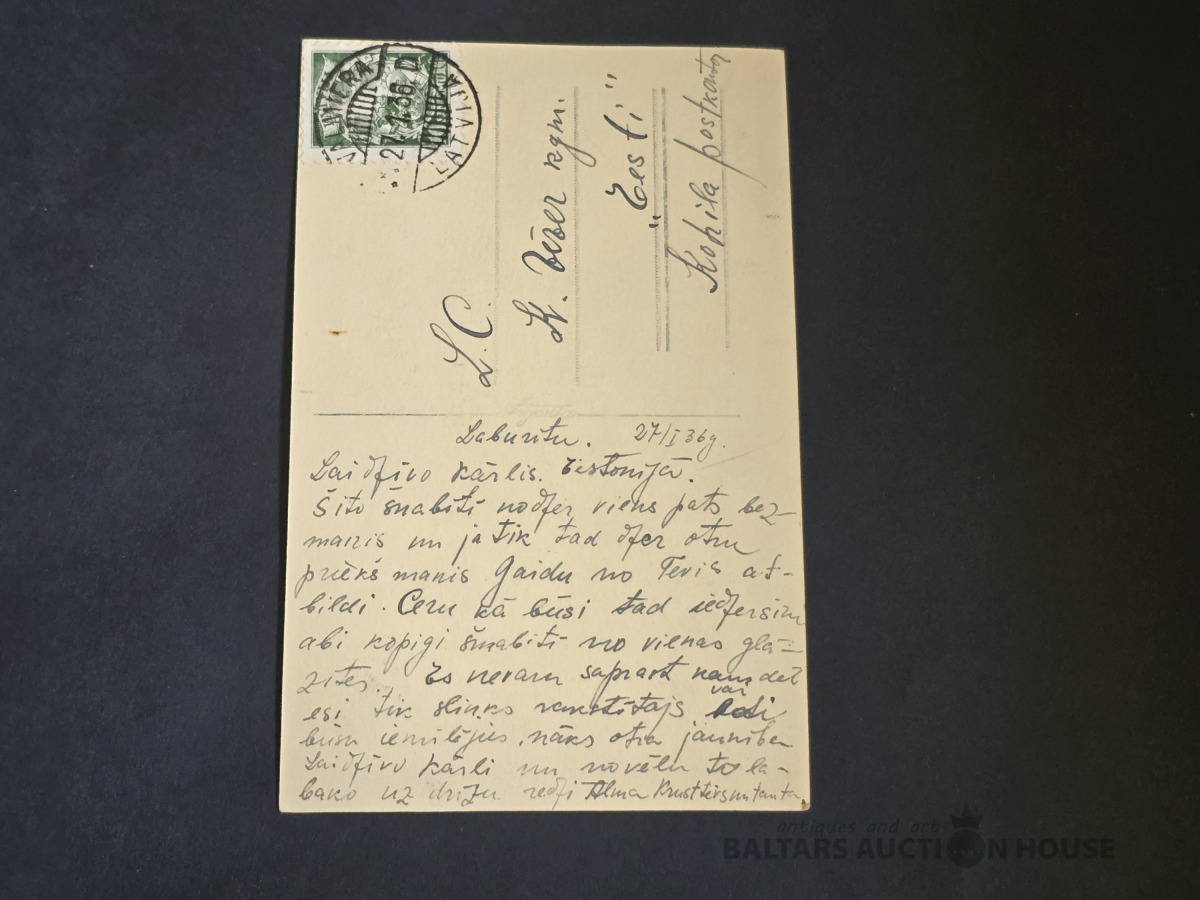 VALMIERA
27.1.36 D
LATVIJA
L. C.
K. Bēzer kgm.
"Eesti"
Kohila postkontor
Labrītu. 27/I 36g.
Lai dzīvo Kārlis. Eistonijā.
Šito šnabīti nodzer viens pats bez-
manis un ja tik tad dzer otru
priekš manis Gaidu no Tevis at-
bildi. Ceru kā būsi tad iedzersim
abi kopīgi šnabīti no vienas glā-
zītes. Es nevaru saprast kamdēl
esi tik slinks rakstītajs vai
būsu iemīlējies, nāks otra jaunība
Lai dzīvo Kārli un novēlu to la-
bāko uz drīzu redzi Alma Krusttēvs un tante
antiques and art
BALTARS AUCTION HOUSE